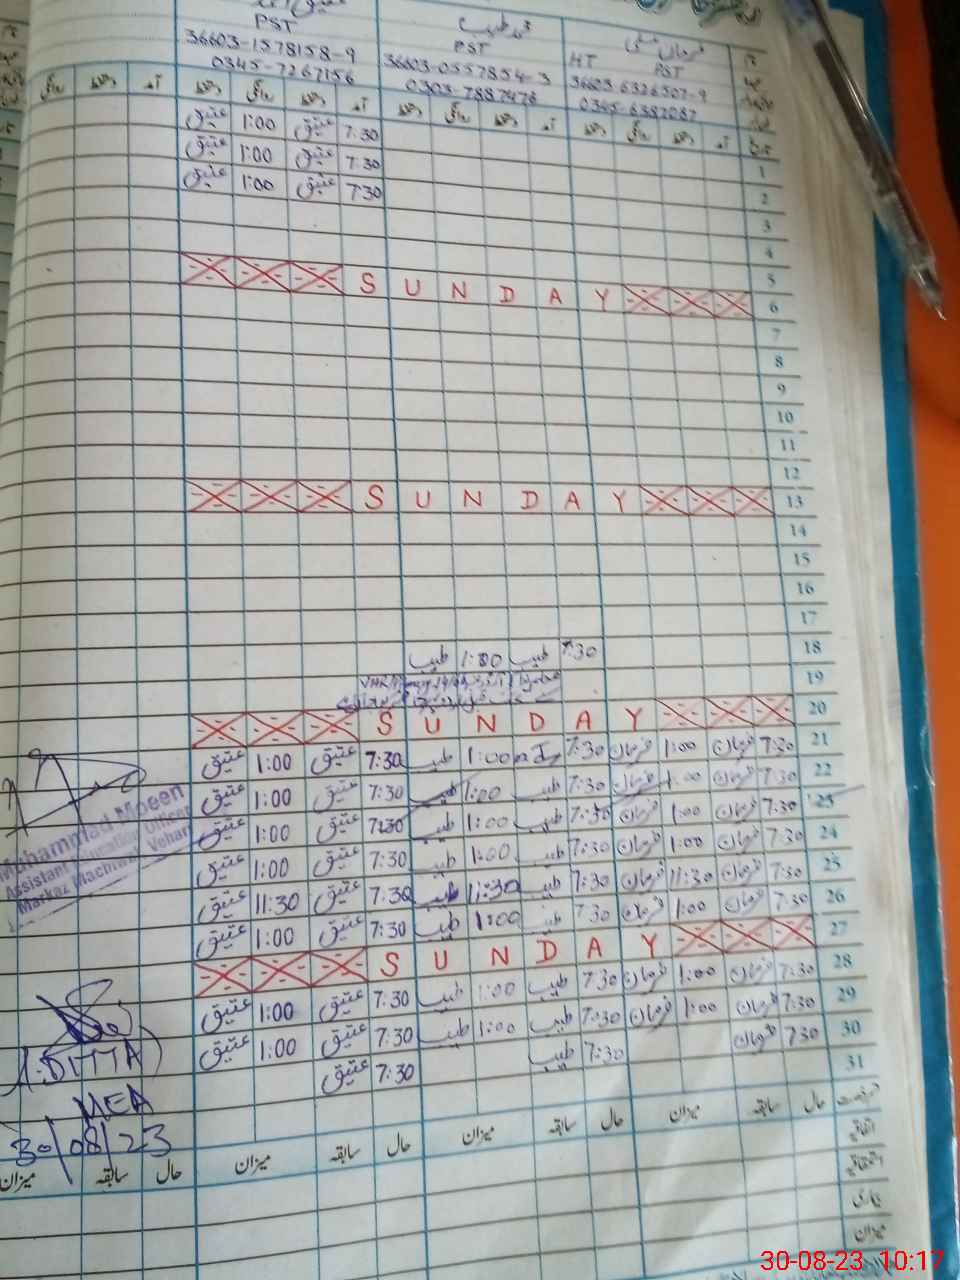 PST
36603-1578158-9
0345-7267156
محمد طیب
PST
36603-0557854-3
0303-7887476
HT PST
36603-6326507-9
0345-6387087
1
عتیق 7:30 عتیق 1:00
2
عتیق 7:30 عتیق 1:00
3
عتیق 7:30 عتیق 1:00
4
5
6
SUNDAY
7
8
9
10
11
12
13
SUNDAY
14
15
16
17
18
طیب 7:30 طیب 1:00
19
20
SUNDAY
21
فرمان 7:30 فرمان 1:00 7:30 طیب 1:00 عتیق 7:30 عتیق 1:00
22
فرمان 7:30 فرمان 1:00 طیب 7:30 طیب 1:00 عتیق 7:30 عتیق 1:00
23
فرمان 7:30 فرمان 1:00 طیب 7:30 طیب 1:00 عتیق 7:30 عتیق 1:00
24
فرمان 7:30 فرمان 1:00 طیب 7:30 طیب 1:00 عتیق 7:30 عتیق 1:00
25
فرمان 7:30 فرمان 11:30 طیب 7:30 طیب 11:30 عتیق 7:30 عتیق 11:30
26
فرمان 7:30 فرمان 1:00 طیب 7:30 طیب 1:00 عتیق 7:30 عتیق 1:00
27
SUNDAY
28
فرمان 7:30 فرمان 1:00 طیب 7:30 طیب 1:00 عتیق 7:30 عتیق 1:00
29
فرمان 7:30 فرمان 1:00 طیب 7:30 طیب 1:00 عتیق 7:30 عتیق 1:00
30
فرمان 7:30 طیب 7:30 عتیق 7:30
31
Muhammad Moeen
Assistant Education Officer
Markaz Machiwal Vehari
MEA
30/08/23
حال سابقہ میزان حال سابقہ میزان حال سابقہ میزان
اتفاقیہ
استحقاقیہ
بیماری
میزان
30-08-23 10:17